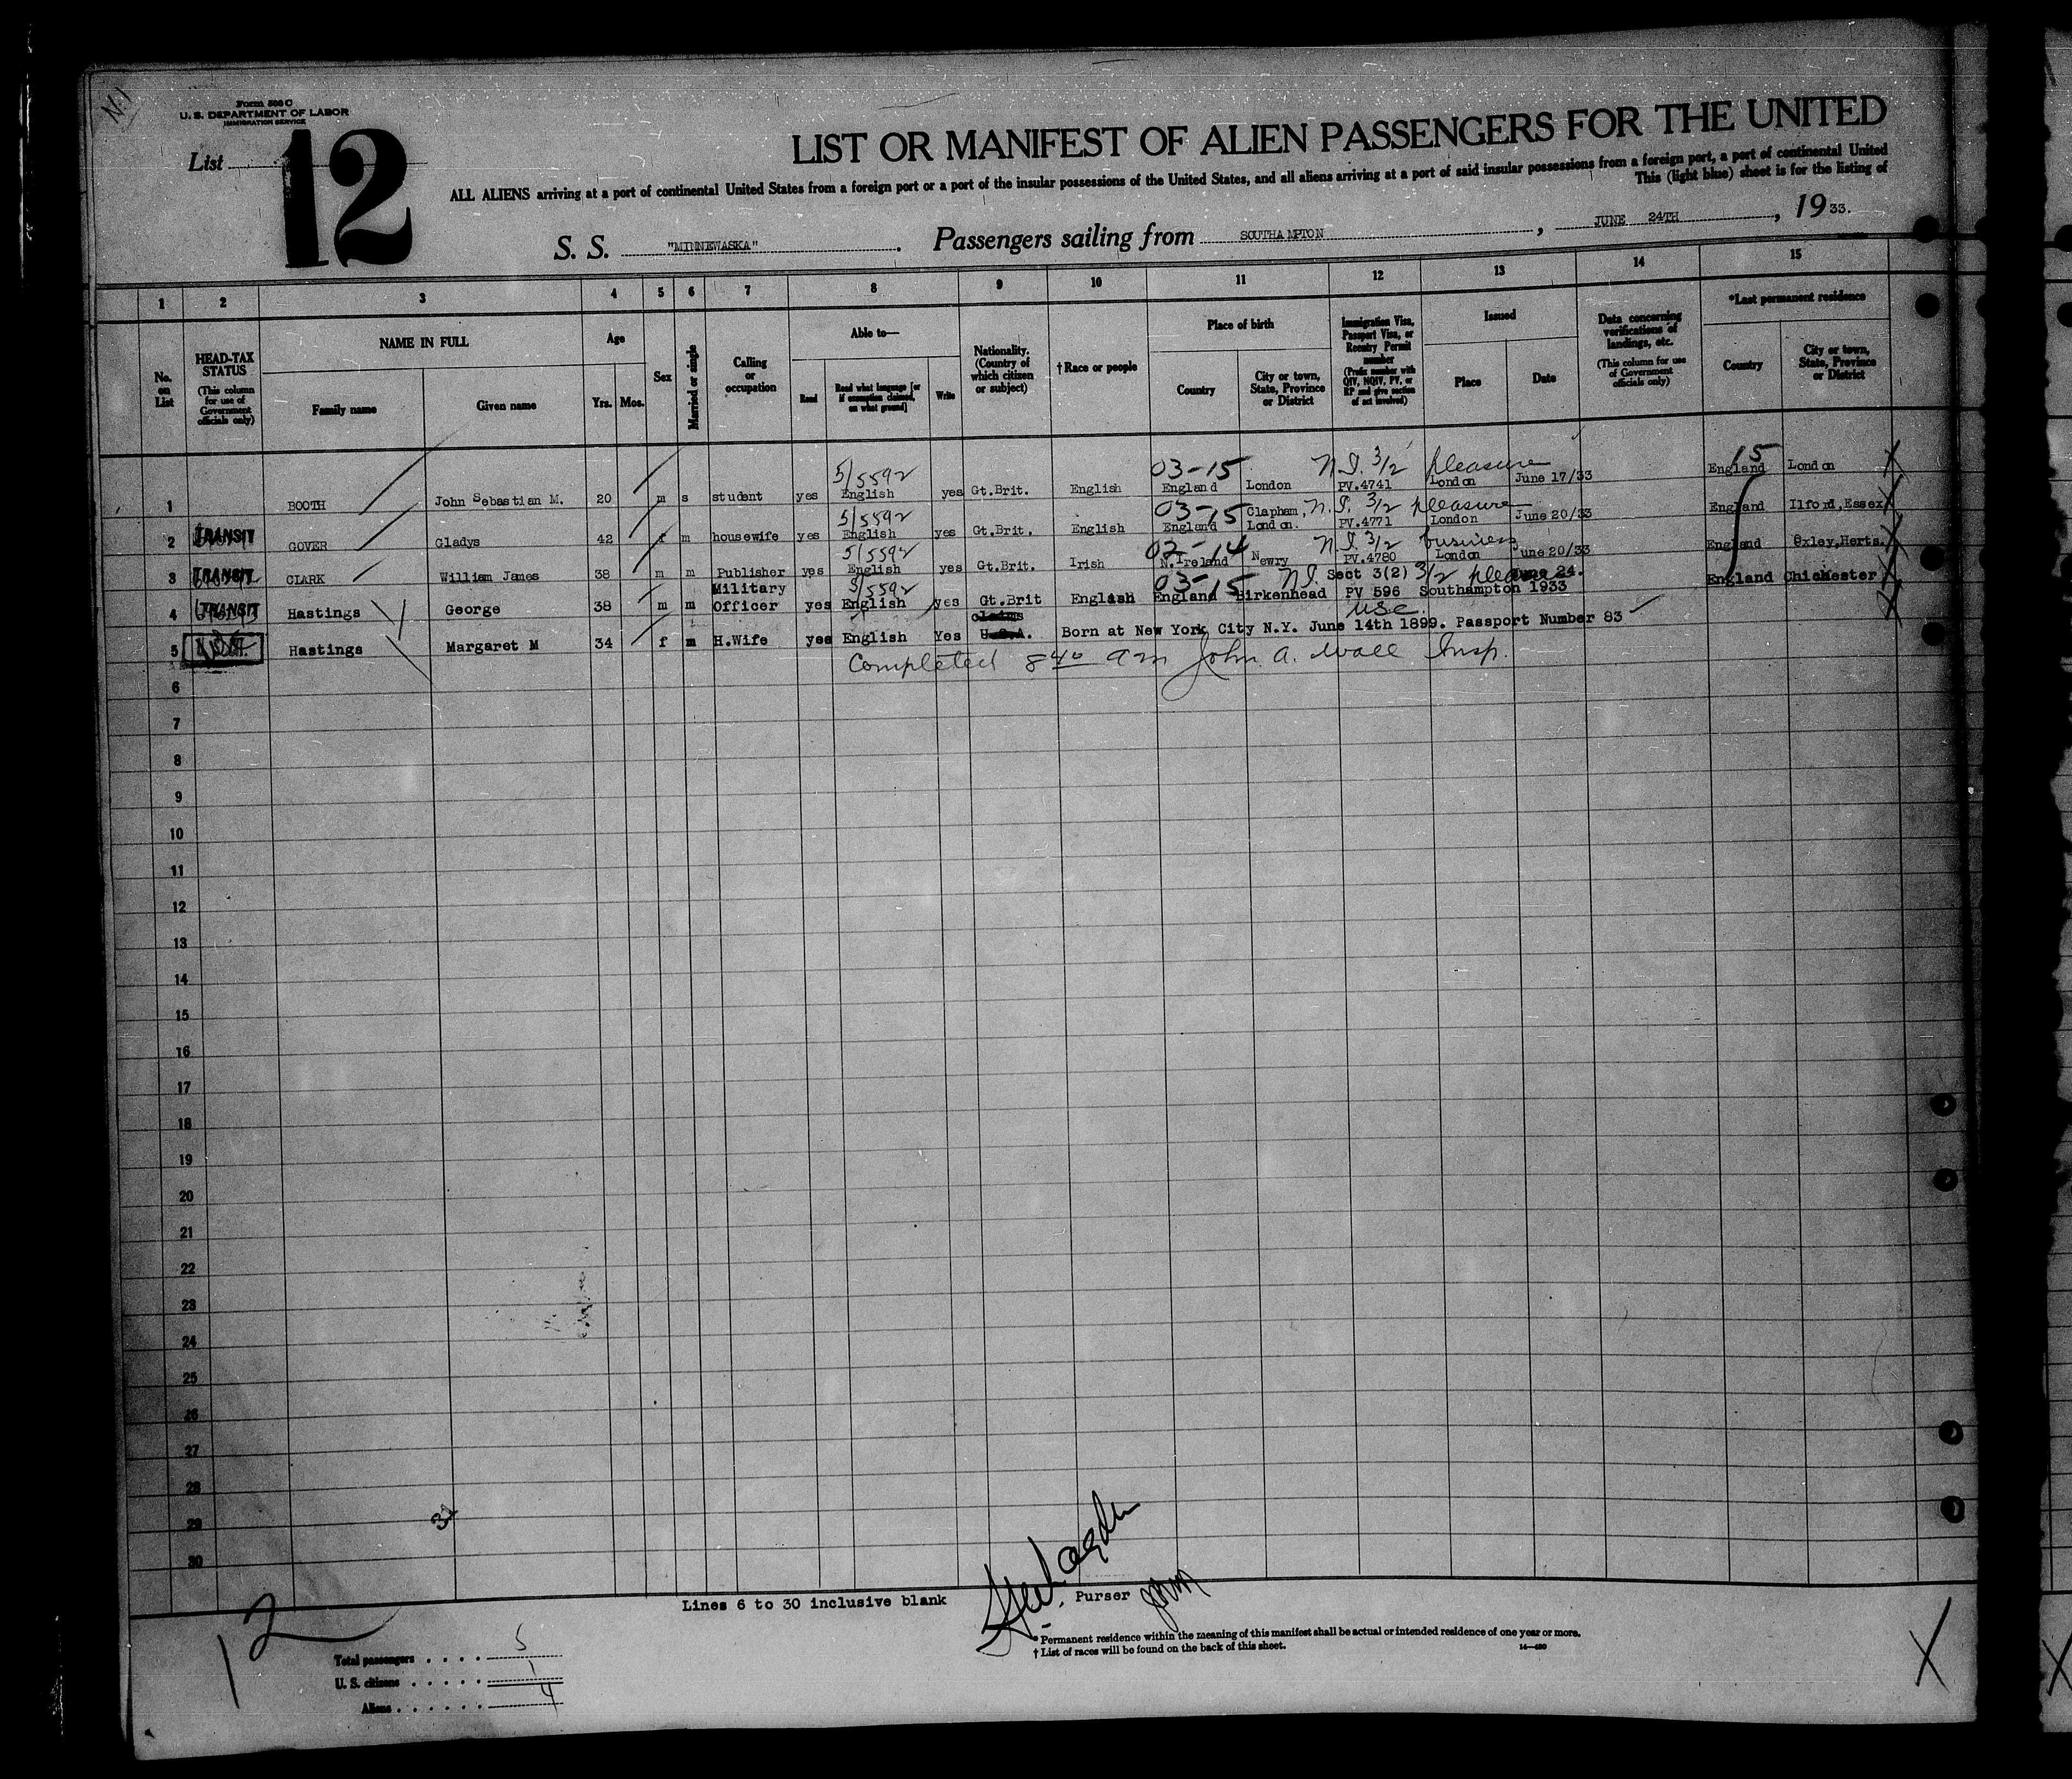 N.1
Form 500 C
U. S. DEPARTMENT OF LABOR
IMMIGRATION SERVICE
List 12
LIST OR MANIFEST OF ALIEN PASSENGERS FOR THE UNITED
ALL ALIENS arriving at a port of continental United States from a foreign port or a port of the insular possessions of the United States, and all aliens arriving at a port of said insular possessions from a foreign port, a port of continental United
This (light blue) sheet is for the listing of
S. S. "MINNEWASKA". Passengers sailing from SOUTHAMPTON, JUNE 24TH, 1933.
1 2 3 4 5 6 7 8 9 10 11 12 13 14 15
No. on List
HEAD-TAX STATUS
(This column for use of Government officials only)
NAME IN FULL
Family name
Given name
Age
Yrs. Mos.
Sex
Married or single
Calling or occupation
Able to—
Read
Read what language [or if exemption claimed, on what ground]
Write
Nationality. (Country of which citizen or subject)
†Race or people
Place of birth
Country
City or town, State, Province or District
Immigration Visa, Passport Visa, or Reentry Permit number
(Prefix number with QIV, NQIV, PV, or RP and give section of act involved)
Issued
Place
Date
Data concerning verifications of landings, etc.
(This column for use of Government officials only)
*Last permanent residence
Country
City or town, State, Province or District
5/5592 03-15 N.I. 3/2 pleasure 15
1 BOOTH John Sebastian M. 20 m s student yes English yes Gt.Brit. English England London PV.4741 London June 17/33 England London
5/5592 03-15 N.I. 3/2 pleasure
2 TRANSIT GOVER Gladys 42 f m housewife yes English yes Gt.Brit. English England Clapham, London. PV.4771 London June 20/33 England Ilford,Essex
5/5592 02-14 N.I. 3/2 business
3 TRANSIT CLARK William James 38 m m Publisher yes English yes Gt.Brit. Irish N.Ireland Newry PV.4780 London June 20/33 England Oxley,Herts.
5/5592 03-15 N.I. Sect 3(2) 3/2 pleasure June 24.
4 TRANSIT Hastings George 38 m m Military Officer yes English yes Gt.Brit English England Birkenhead PV 596 Southampton 1933 England Chichester
claims USC
5 Hastings Margaret M 34 f m H.Wife yes English Yes U.S.A. Born at New York City N.Y. June 14th 1899. Passport Number 83
Completed 840 am John A. Wall Insp.
6
7
8
9
10
11
12
13
14
15
16
17
18
19
20
21
22
23
24
25
26
27
28
29
30
Lines 6 to 30 inclusive blank
Purser
12
Total passengers . . . . 5
U. S. citizens . . . . . 1
Aliens . . . . . . 4
* Permanent residence within the meaning of this manifest shall be actual or intended residence of one year or more.
† List of races will be found on the back of this sheet.
14—480